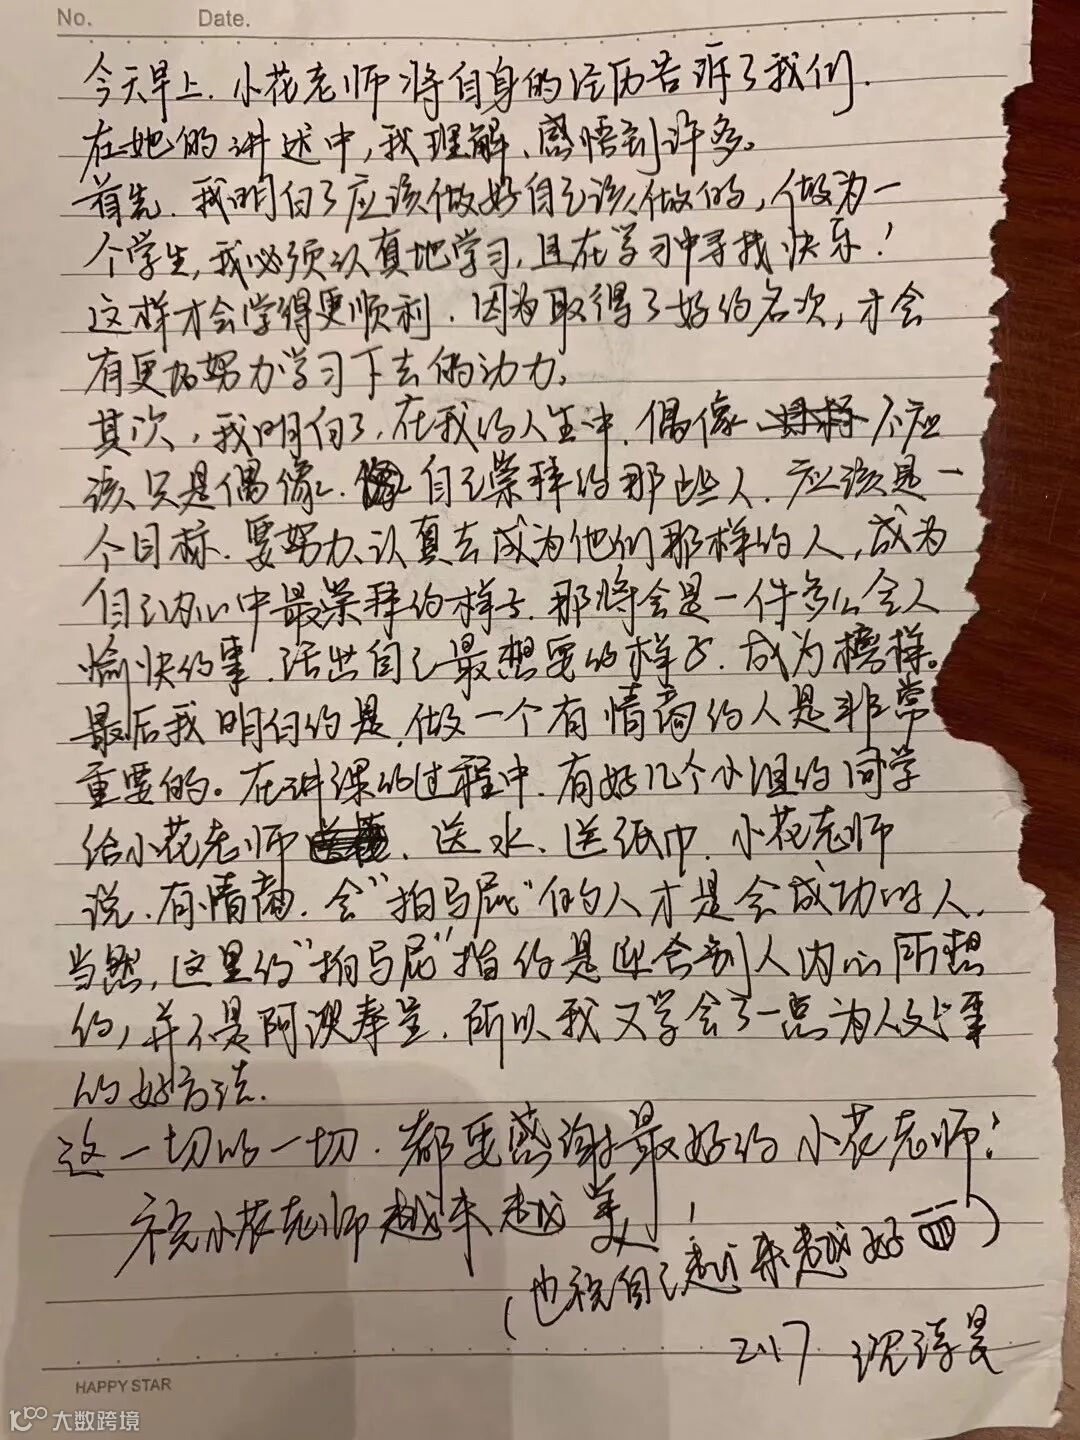 No. Date.
今天早上.小花老师将自身的经历告诉了我们.
在她的讲述中,我理解、感悟到许多。
首先.我明白了应该做好自己该做的,做为一
个学生,我必须认真地学习,且在学习中寻找快乐!
这样才会学得更顺利.因为取得了好的名次,才会
有更加努力学习下去的动力。
其次,我明白了,在我的人生中.偶像不应
该只是偶像.自己崇拜的那些人.应该是一
个目标.要努力、认真去成为他们那样的人,成为
自己内心中最崇拜的样子.那将会是一件多么令人
愉快的事.活出自己最想要的样子.成为榜样。
最后我明白的是.做一个有情商的人是非常
重要的。在讲课的过程中.有好几个小组的同学
给小花老师.送水、送纸巾.小花老师
说.有情商.会"拍马屁"的人才是会成功的人.
当然,这里的"拍马屁"指的是迎合别人内心所想
的,并不是阿谀奉呈.所以我又学会了一点为人处事
的好方法.
这一切的一切.都要感谢最好的小花老师!
祝小花老师越来越美!
(也祝自己越来越好)
2.17
HAPPY STAR
大数跨境